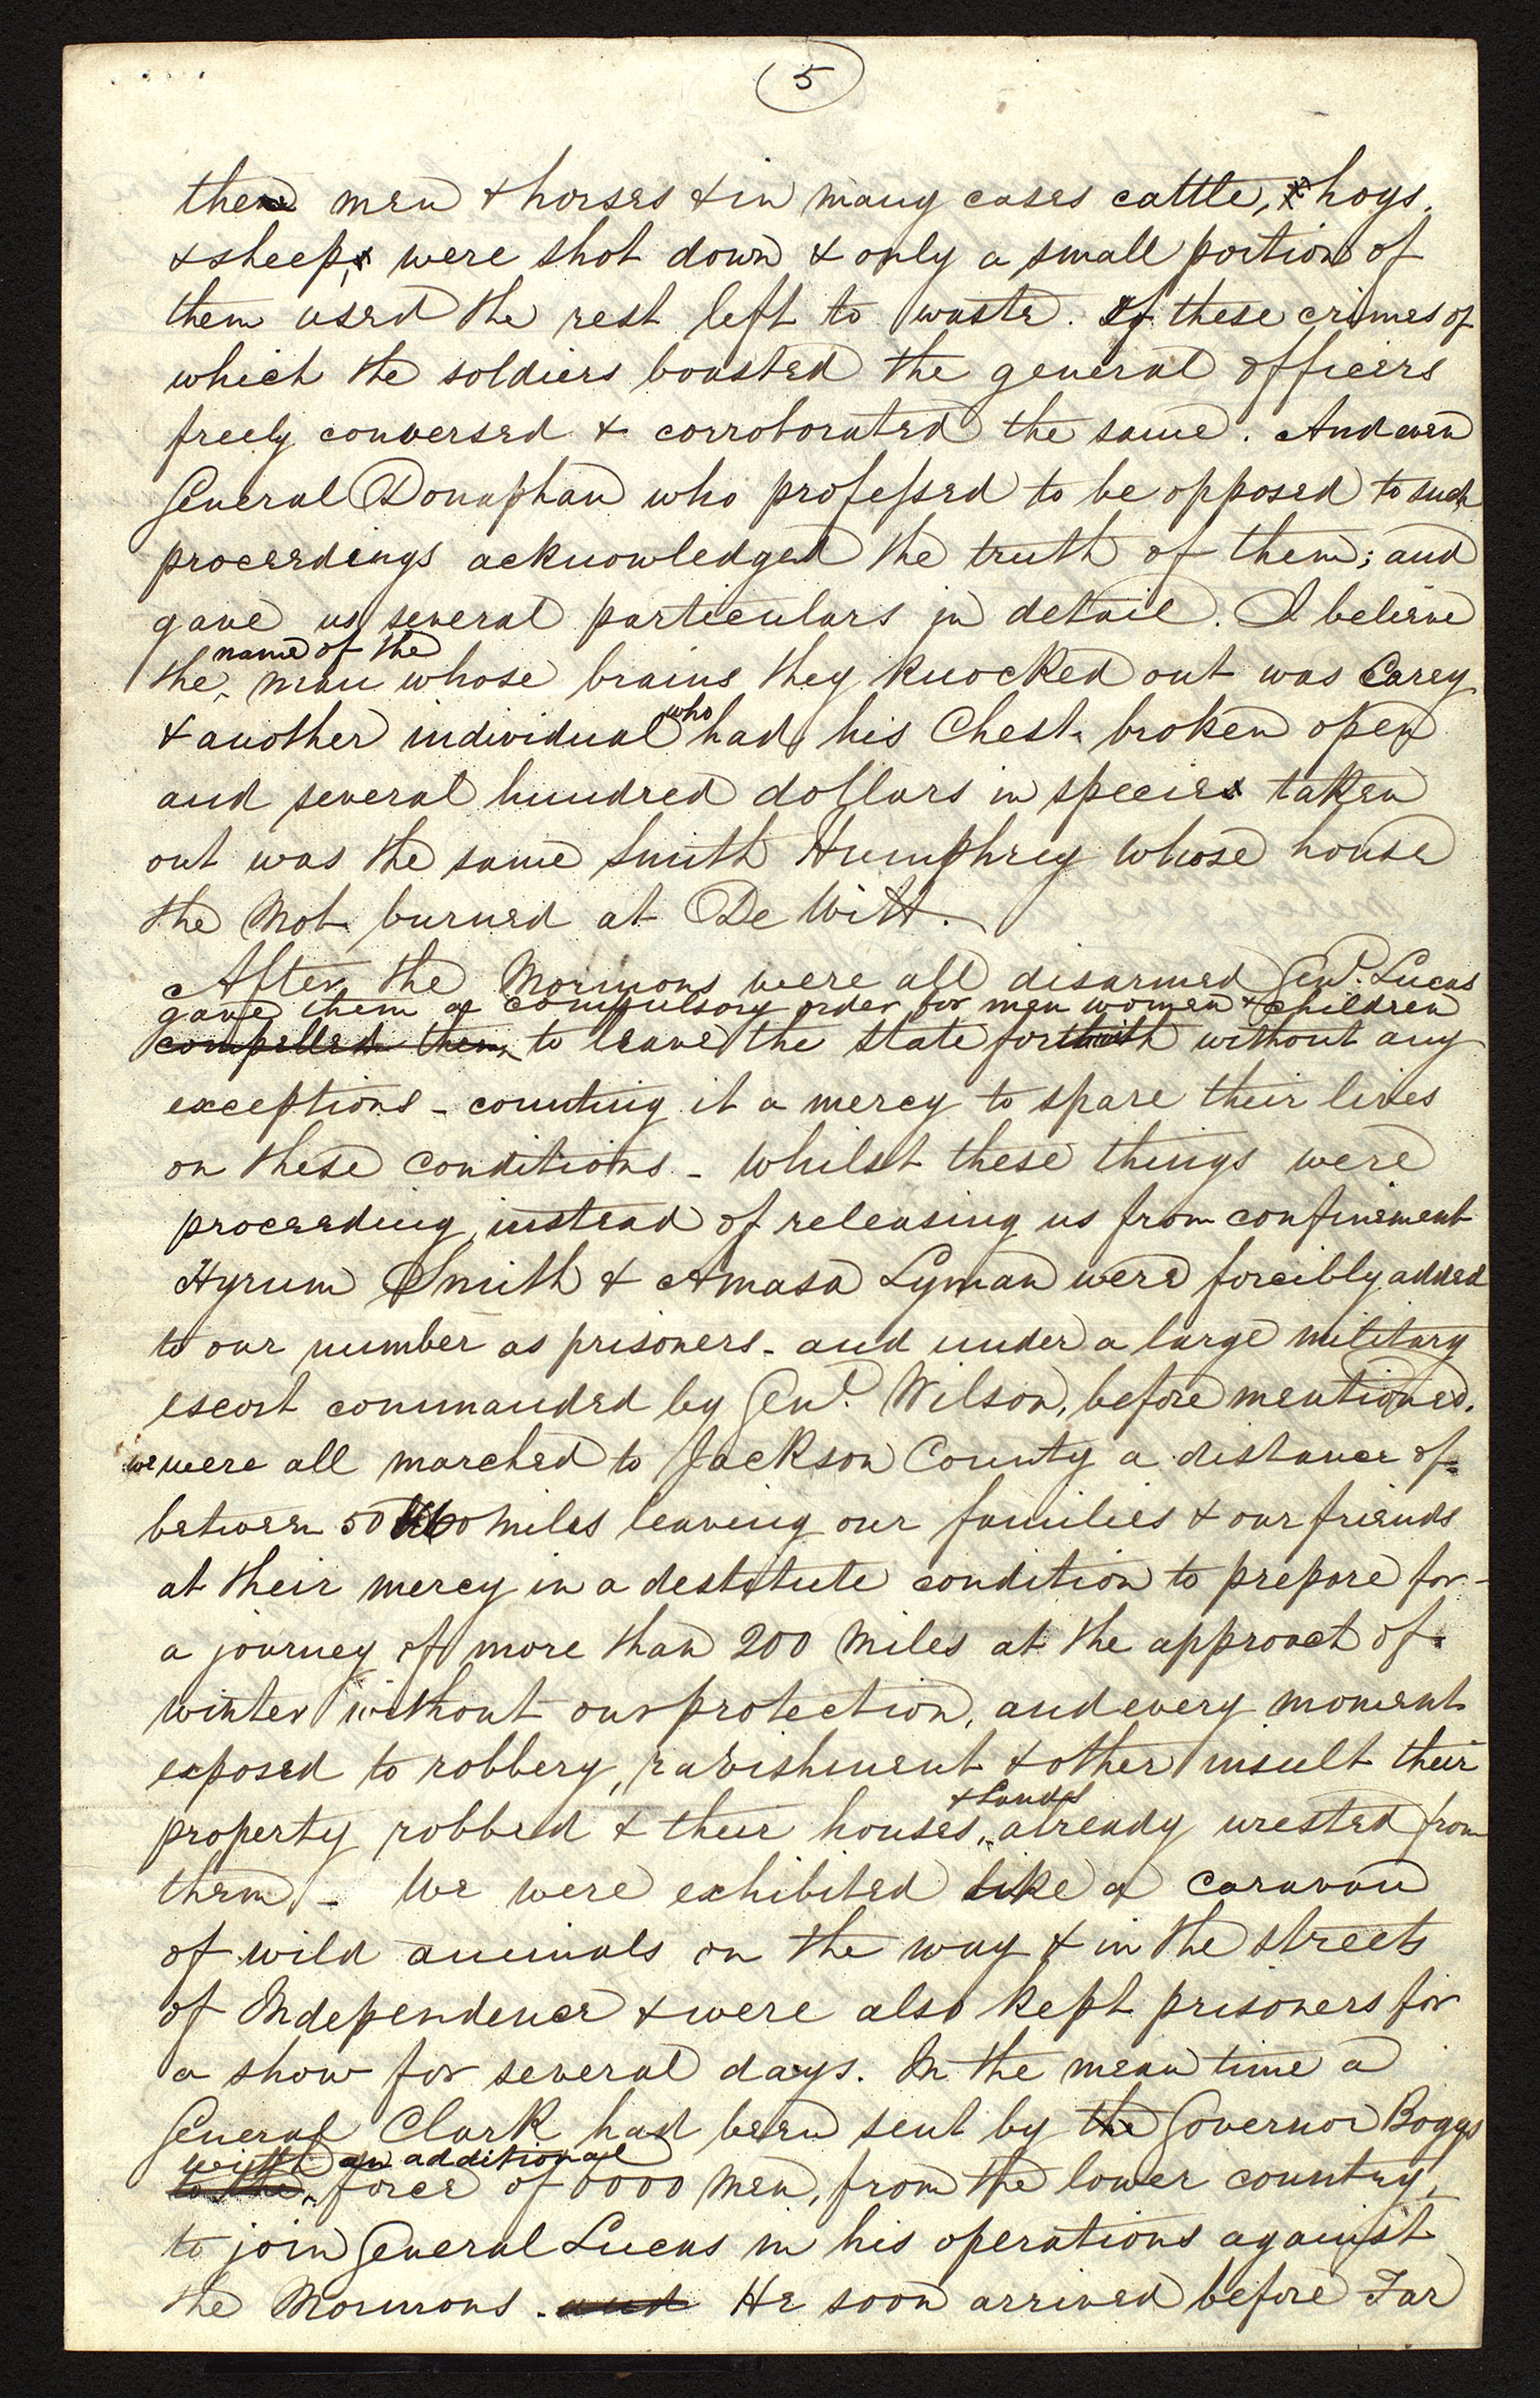 5
their men & horses & in many cases cattle, & hogs,
& sheep, were shot down & only a small portion of
them used the rest left to waste. Of these crimes of
which the soldiers boasted the general officers
freely conversed & corroborated the same. And even
General Donaphan who professed to be opposed to such
proceedings acknowledged the truth of them; and
gave us several particulars in detail. I believe
name of the
the man whose brains they knocked out was Carey
& another individual who had his Chest broken open
and several hundred dollars in specie taken
out was the same Smith Humphrey whose house
the Mob burned at De Witt.
After the Mormons were all disarmed Genl. Lucas
gave them a compulsory order for men women & children
compelled them to leave the state forthwith without any
exceptions - counting it a mercy to spare their lives
on these conditions - Whilst these things were
proceeding, instead of releasing us from confinement
Hyrum Smith & Amasa Lyman were forcibly added
to our number as prisoners - and under a large military
escort commanded by Genl. Wilson, before mentioned.
we were all marched to Jackson County a distance of
between 50 & 60 miles leaving our families & our friends
at their mercy in a destitute condition to prepare for
a journey of more than 200 Miles at the approach of
winter without our protection, and every moment
exposed to robbery, ravishment & other insult their
& Lands
property robbed & their houses, already wrested from
them - We were exhibited like a caravan
of wild animals on the way & in the streets
of Independence & were also kept prisoners for
a show for several days. In the mean time a
General Clark had been sent by the Governor Boggs
with an additional
to the force of 6000 men, from the lower country,
to join General Lucas in his operations against
the Mormons. and He soon arrived before Far